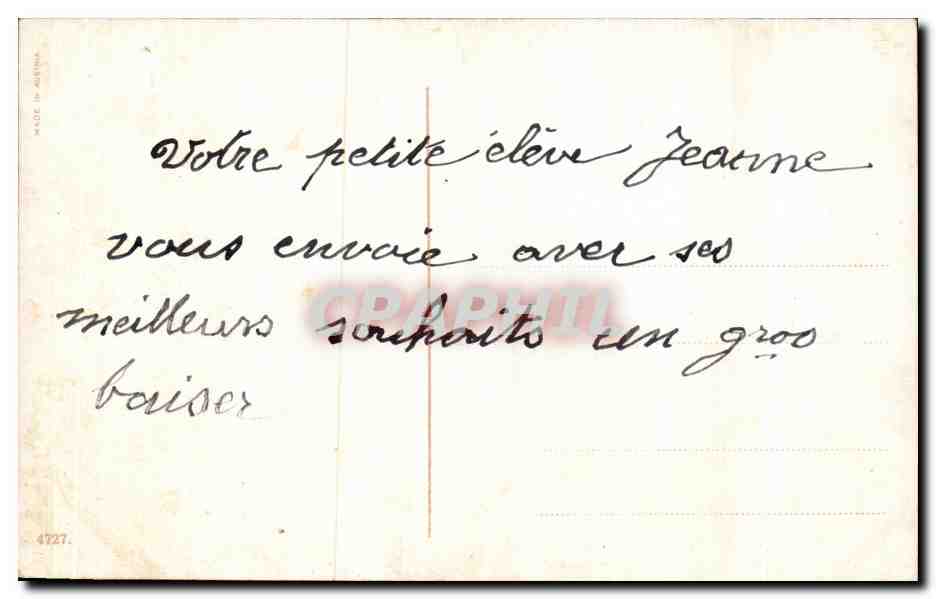 MADE IN AUSTRIA
Votre petite élève Jeanne
vous envoie avec ses
meilleurs souhaits un gros
baiser
CPAPHIL
4727.